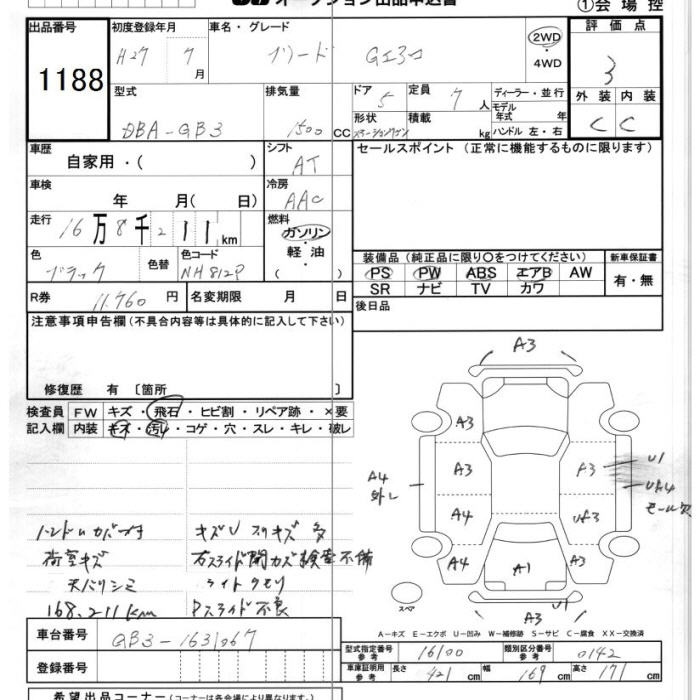 オークション出品申込書
①会場控
出品番号
1188
初度登録年月
H27 7月
車名・グレード
フリード GエアロM
2WD
・4WD
評価点
3
外装 内装
C C
型式
DBA-GB3
排気量
1500 CC
ドア 5
形状
ステーションワゴン
定員 7人
積載 kg
ディーラー・並行
モデル年式 年
ハンドル 左・右
車歴
自家用・( )
シフト
AT
車検
年 月( 日)
冷房
AAC
走行
16万8千211km
燃料
ガソリン
・
軽油
( )
色
ブラック
色替
色コード
NH812P
R券
11.760円
名変期限 月 日
セールスポイント(正常に機能するものに限ります)
装備品(純正品に限り○をつけてください)
PS PW ABS エアB AW
SR ナビ TV カワ
新車保証書
有・無
後日品
注意事項申告欄(不具合内容等は具体的に記入して下さい)
修復歴 有〔箇所 〕
検査員記入欄
FW キズ・飛石・ヒビ割・リペア跡・×要
内装 キズ・汚れ・コゲ・穴・スレ・キレ・破レ
荷室キズ
天バリシミ
168.211km
キズU スリキズ 多
右スライド開カズ検査不備
ライトクモリ
Pスライド不良
A3
A3
A3
A4
A4
A4
外し
A1
A3
UA3
A3
U1
UA4
モール欠
A3
U1
スペア
A-キズ E-エクボ U-凹み W-補修跡 S-サビ C-腐食 XX-交換済
車台番号
GB3-1631067
登録番号
型式指定番号
参考
16100
類別区分番号
参考
0142
車庫証明用
参考
長さ 421cm
幅 169cm
高さ 171cm
希望出品コーナー(コーナーは各会場により